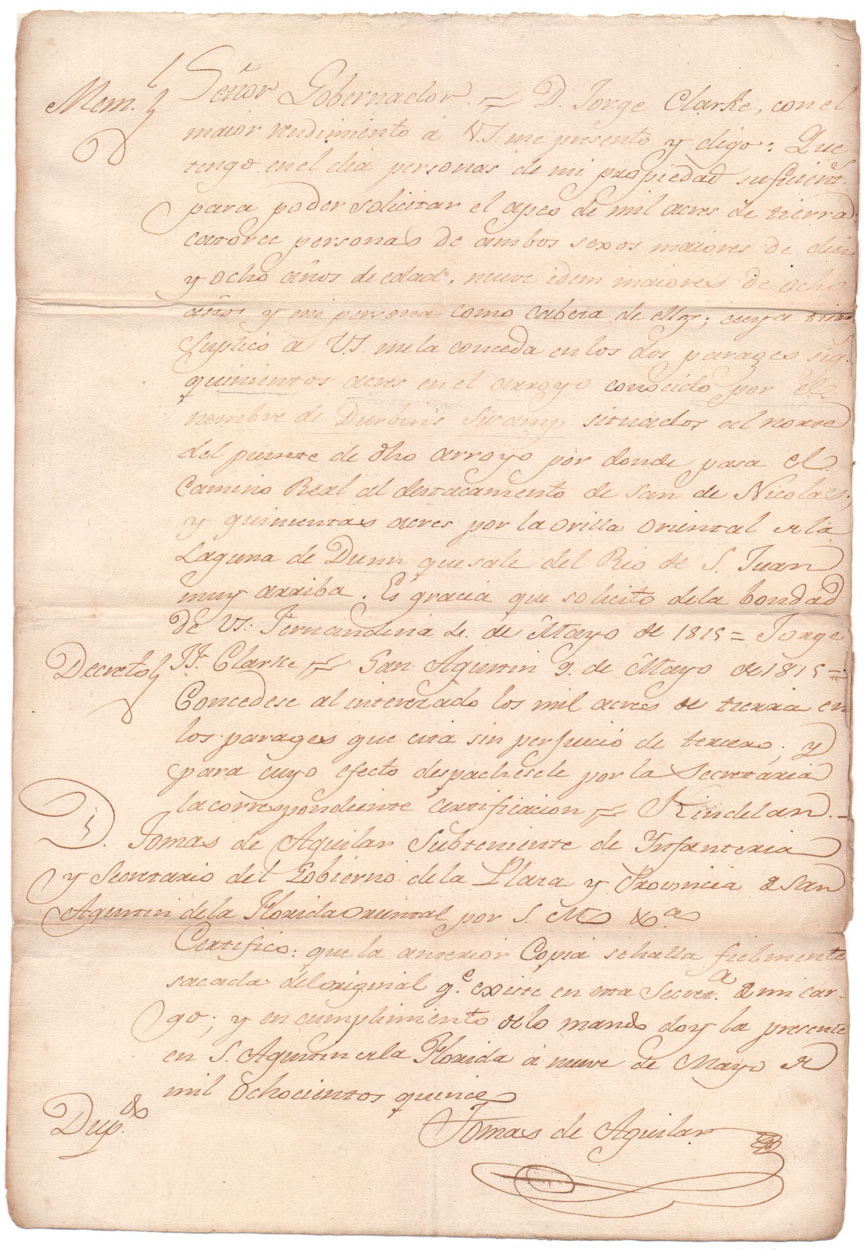 Mem.l Señor Gobernador.= D. Jorge Clarke, con el
maior rendimiento á V.S. me presento y digo: Que
tengo en el dia personas de mi propiedad suficient.
para poder solicitar el apeo de mil acres de tierra
catorce personas de ambos sexos maiores de diez
y ocho años de edad, nueve idem maiores de ocho
años y mi persona como cabeza de ellas; cuya
Suplico á V.S. me la conceda en los dos parages sig.
quinientos acres en el arroyo conocido por el
nombre de Durbins Swamp, situados al norte
del puente de dho arroyo por donde pasa el
Camino Real al destacamento de San de Nicolas,
y quinientas acres por la orilla oriental de la
Laguna de Dunn que sale del Rio de S. Juan
muy arriba. Es gracia que solicito de la bondad
de V.S. Fernandina de Mayo de 1815 = Jorge
Decreto J. F. Clarke = San Agustin 9. de Mayo de 1815 =
Concedese al interezado los mil acres de tierra en
los parages que cita sin perjuicio de tercero; y
para cuyo efecto despachesele por la Secretaria
la correspondiente certificacion = Kindelan. –
D.n Tomas de Aguilar Subteniente de Infanteria
y Secretario del Gobierno de la Plaza y Provincia de San
Agustin de la Florida Oriental por S. M. &.a
Certifico: que la anterior Copia se halla fielmente
sacada del original q.e existe en esta Secret.a de mi car-
go; y en cumplimiento de lo mando doy la presente
en S. Agustin de la Florida á nueve de Mayo de
mil ochocientos quince
Dup.do Tomas de Aguilar